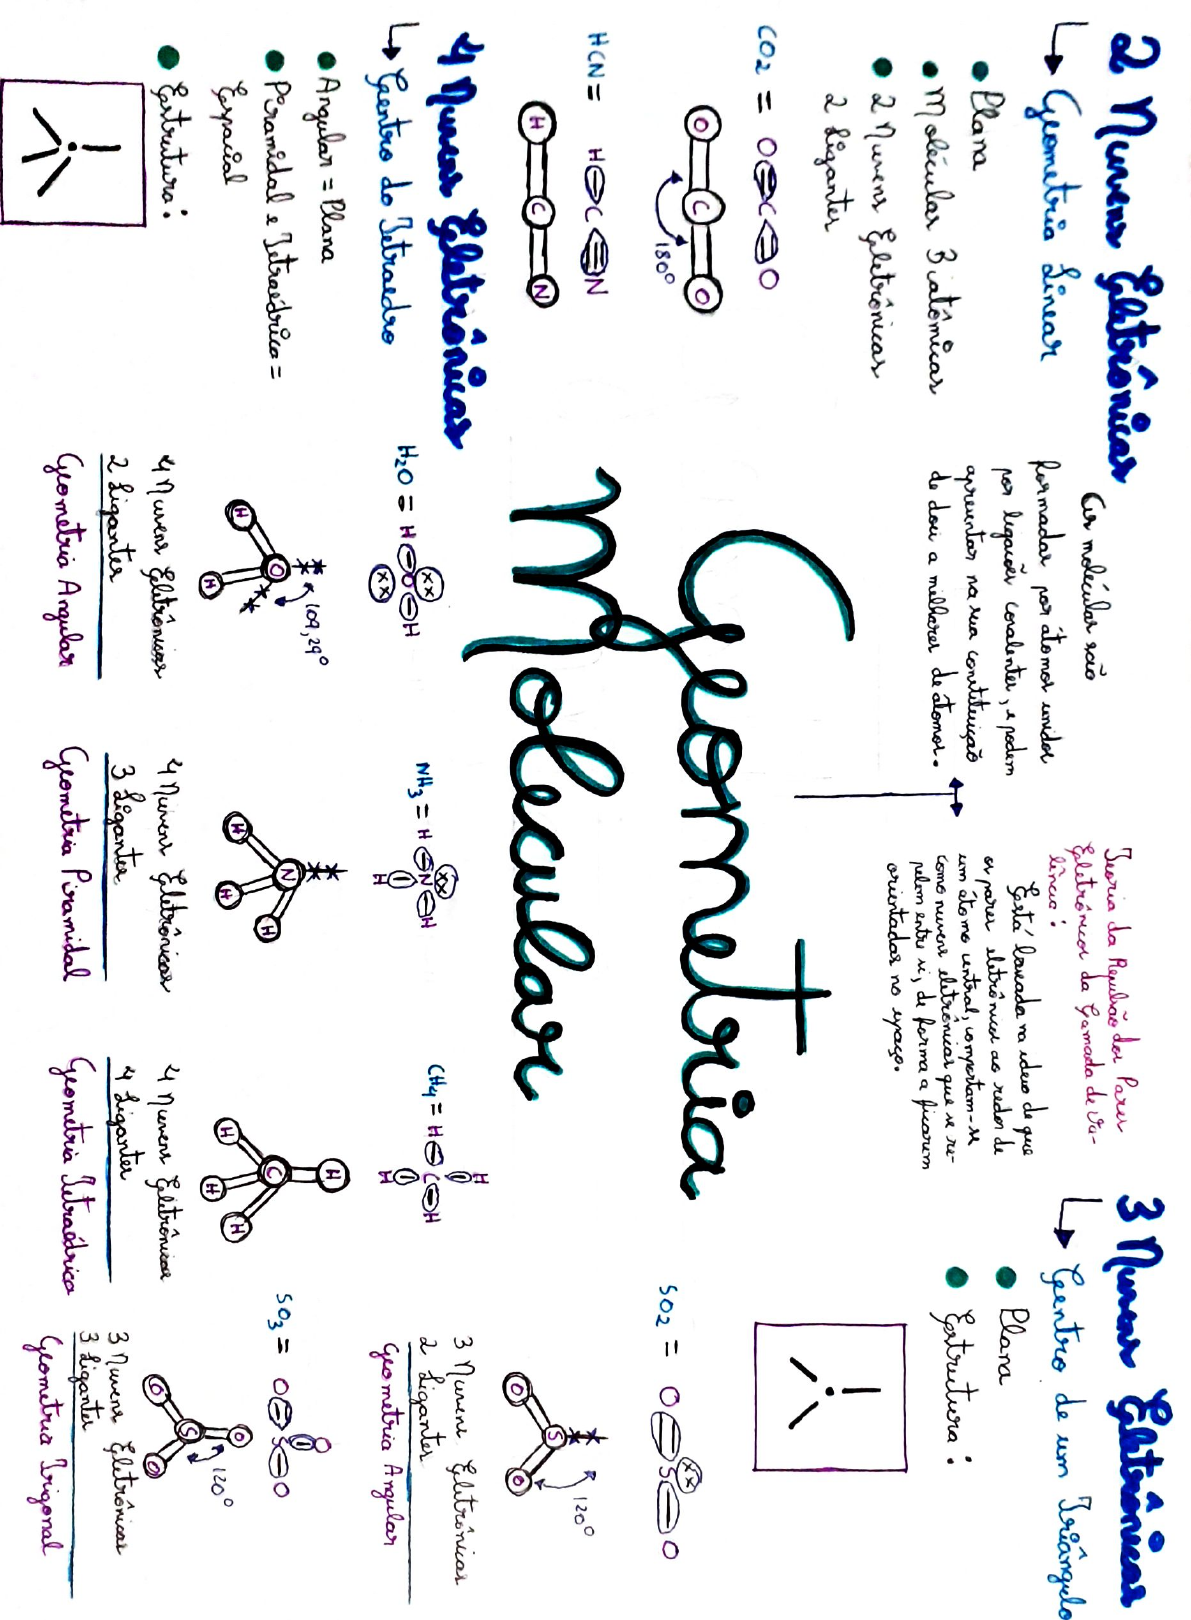 2 Nuvens Eletrônicas
Geometria Linear
Plana
Moléculas Biatômicas
2 Nuvens Eletrônicas
2 Ligantes
CO2 = O C O
O C O
180°
HCN = H C N
H C N
As moléculas são
formadas por átomos unidos
por ligações covalentes, e podem
apresentar na sua constituição
de dois a milhares de átomos.
Geometria
Molecular
Teoria da Repulsão dos Pares
Eletrônicos da Camada de Va-
lência:
Está baseada na ideia de que
os pares eletrônicos ao redor de
um átomo central, comportam-se
como nuvens eletrônicas que se re-
pelem entre si, de forma a ficarem
orientadas no espaço.
3 Nuvens Eletrônicas
Centro de um Triângulo
Plana
Estrutura:
SO2 = O S O
xx
O S O
120°
3 Nuvens Eletrônicas
2 Ligantes
Geometria Angular
SO3 = O S O
O
O S O
O
120°
3 Nuvens Eletrônicas
3 Ligantes
Geometria Trigonal
4 Nuvens Eletrônicas
Centro do Tetraedro
Angular = Plana
Piramidal e Tetraédrica =
Espacial
Estrutura:
H2O = H O H
xx
xx
H O
H
109,29°
4 Nuvens Eletrônicas
2 Ligantes
Geometria Angular
NH3 = H N H
xx
H
H N
H H
4 Nuvens Eletrônicas
3 Ligantes
Geometria Piramidal
CH4 = H C H
H
H
H
C
H H H
4 Nuvens Eletrônicas
4 Ligantes
Geometria Tetraédrica